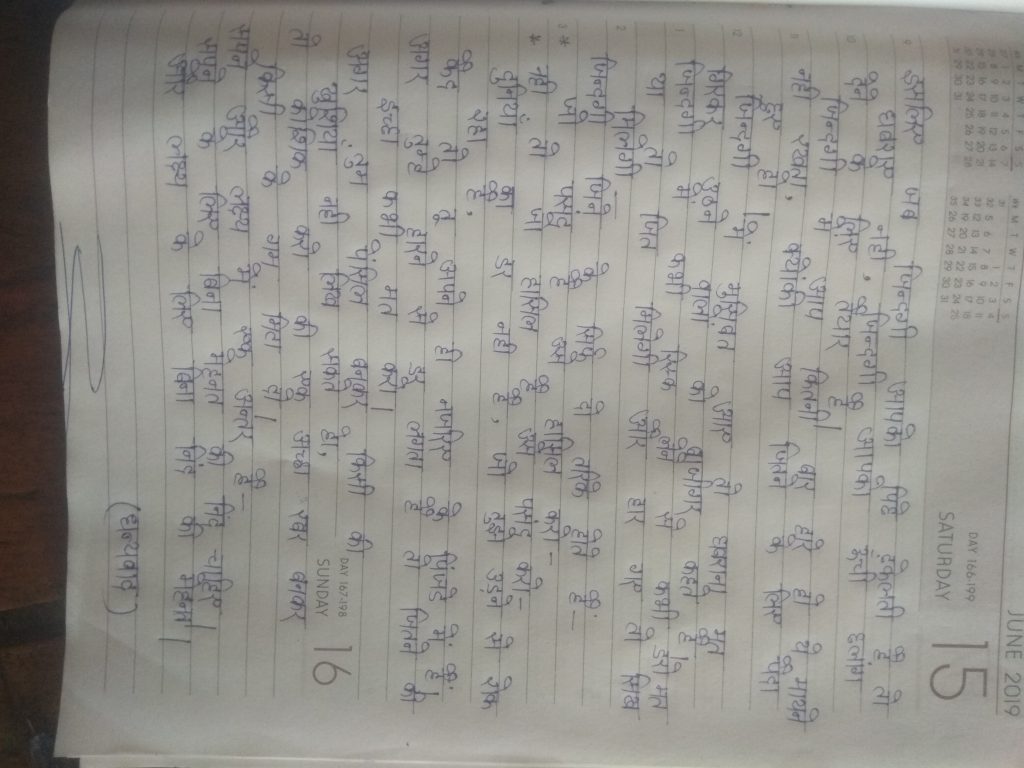 JUNE 2019
DAY 166-199
SATURDAY 15
इसलिए जब जिन्दगी आपको पिछे ढकेलती है तो
घबराए नही, जिन्दगी आपको ऊँची छलांग
देने के लिए तैयार है।
जिन्दगी में आप कितनी बार हारे हो ये मायने
नही रखता, क्योंकी आप जितने के लिए पैदा
हुए हो।
जिन्दगी में मुसिबत आए तो घबराना मत
गिरकर उठने वाले को बाजीगर कहते है।
जिन्दगी में कभी किसी से कभी डरो मत
या तो जित मिलेगी और हार गए तो सिख
मिलेगी
जिन्दगी जिने के सिर्फ दो तरीके होते है:-
* जो पसंद है उसे हासिल करो -
* नही तो जो हासिल है, उसे पसंद करो-
दुनिया का डर नही है, जो तुझे उड़ने से रोक
रहा है,
कैद तो वे अपने ही नजरिए के पिंजडे में है
अगर तुम्हे हारने से डर लगता है तो जितने की
इच्छा कभी मत करो।
DAY 167-198
SUNDAY 16
अगर तुम पंसिल बनकर किसी की
खुशिया नही लिख सकते हो,
तो कोशिश करो की एक अच्छा रबर बनकर
किसी के गम मिटा दो।
सपने और लक्ष्य में एक अन्तर है-
सपने के लिए बिना मेहनत की निंद चाहिए
और लक्ष्य के लिए बिना निंद की मेहनत।
(धन्यवाद)